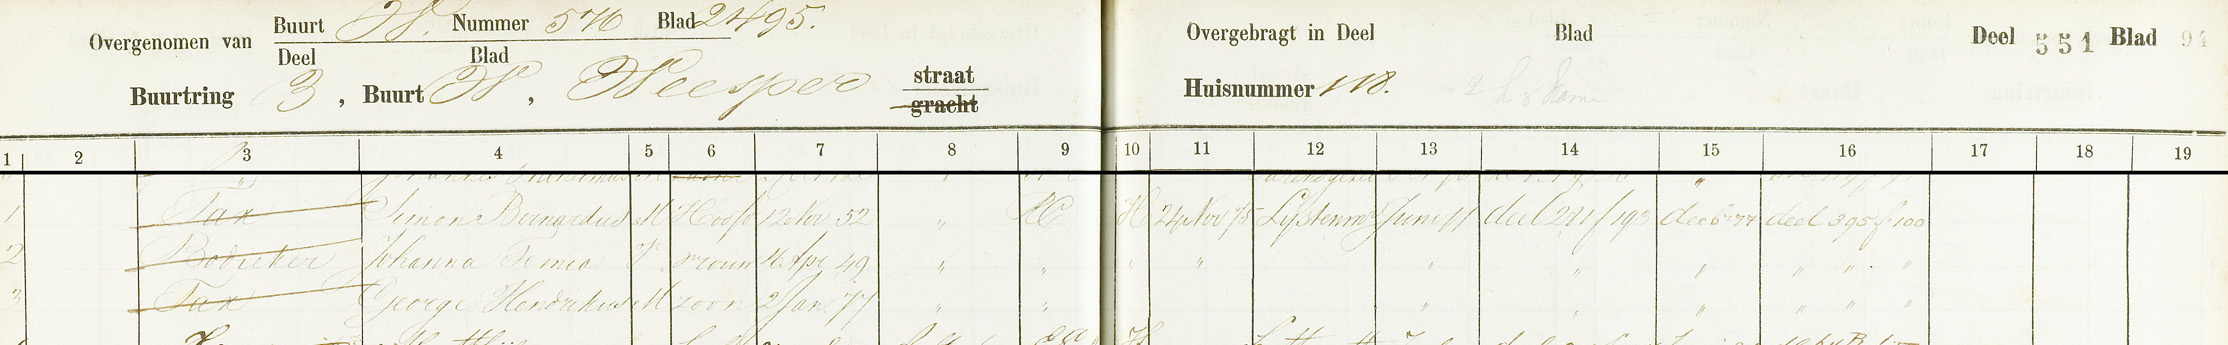 Overgenomen van Buurt W. Nummer 576 Blad 2495.
Deel Blad
Buurtring 3, Buurt W, Weesper straat gracht
Overgebragt in Deel Blad Deel 551 Blad 94
Huisnummer 118.
1 2 3 4 5 6 7 8 9 10 11 12 13 14 15 16 17 18 19
1 Tax Simon Bernardus M Hoofd 12 Nov 52 " RC H 24 Nov 75 Lijstenmr Juni 77 deel 271 f 193 dec 6 77 deel 395 f 100
2 Bödicker Johanna Femia V vrouw 14 Apr 49 " " " " " " " " " "
3 Tax George Hendrikus M zoon 2 Jan 77 " " " " " " " "